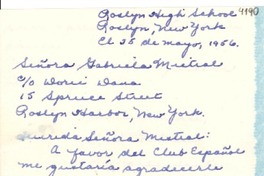 4190
Roslyn High School
Roslyn, New York
El 25 de mayo, 1956.
Señora Gabriela Mistral
c/o Doris Dana
15 Spruce Street
Roslyn Harbor, New York.
Querida Señora Mistral:
A favor del Club Español
me gustaría agradecerle